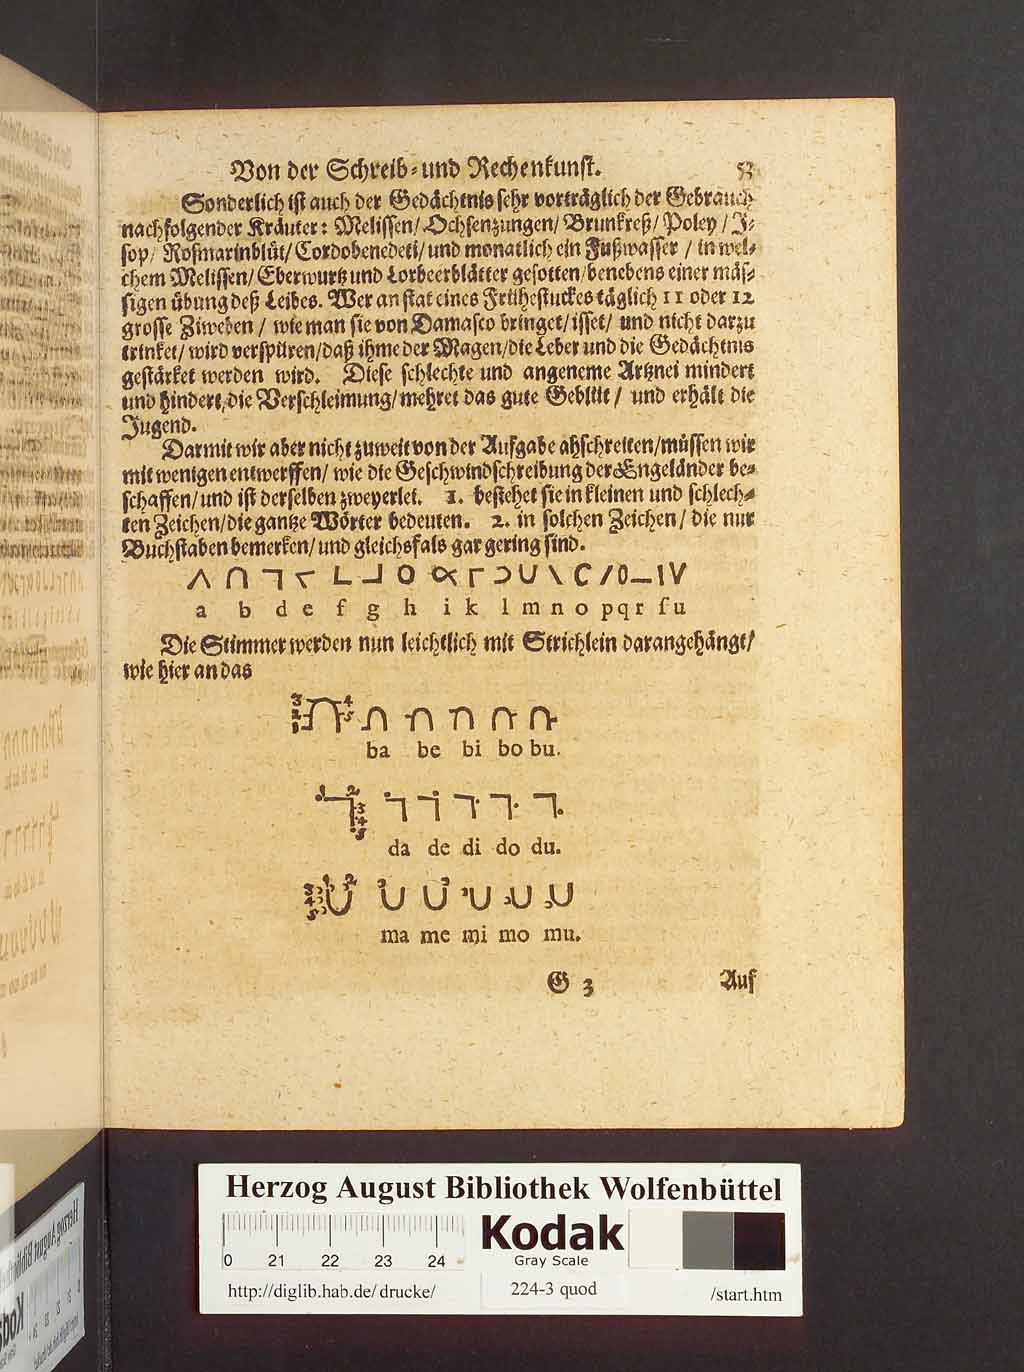 Von der Schreib- und Rechenkunst. 53
Sonderlich ist auch der Gedächtnis sehr vorträglich der Gebrauch
nachfolgender Kräuter: Melissen/ Ochsenzungen/ Brunkreß/ Poley/ J-
sop/ Roßmarinblüt/ Cordobenedeti/ und monatlich ein Fußwasser/ in wel-
chem Melissen/ Eberwurtz und Lorbeerblätter gesotten/ benebens einer mäs-
sigen übung deß Leibes. Wer an stat eines Frühestuckes täglich 11 oder 12
grosse Zibeben/ wie man sie von Damasco bringet/ isset/ und nicht darzu
trinket/ wird verspüren/ daß ihme der Magen/ die Leber und die Gedächtnis
gestärket werden wird. Diese schlechte und angeneme Artznei mindert
und hindert, die Verschleimung/ mehret das gute Geblüt/ und erhält die
Jugend.
Darmit wir aber nicht zuweit von der Aufgabe abschreiten/ müssen wir
mit wenigen entwerffen/ wie die Geschwindschreibung der Engeländer be-
schaffen/ und ist derselben zweyerlei. 1. bestehet sie in kleinen und schlech-
ten Zeichen/ die gantze Wörter bedeuten. 2. in solchen Zeichen/ die nur
Buchstaben bemerken/ und gleichsfals gar gering sind.
a b d e f g h i k l m n o p q r s u
Die Stimmer werden nun leichtlich mit Strichlein darangehängt/
wie hier an das
3 4
2 5
1
ba be bi bo bu.
1 2
3
4
5
da de di do du.
1 2
3
4
5
ma me mi mo mu.
G 3 Auf
Herzog August Bibliothek Wolfenbüttel
0 21 22 23 24
Kodak
Gray Scale
http://diglib.hab.de/drucke/ 224-3 quod /start.htm